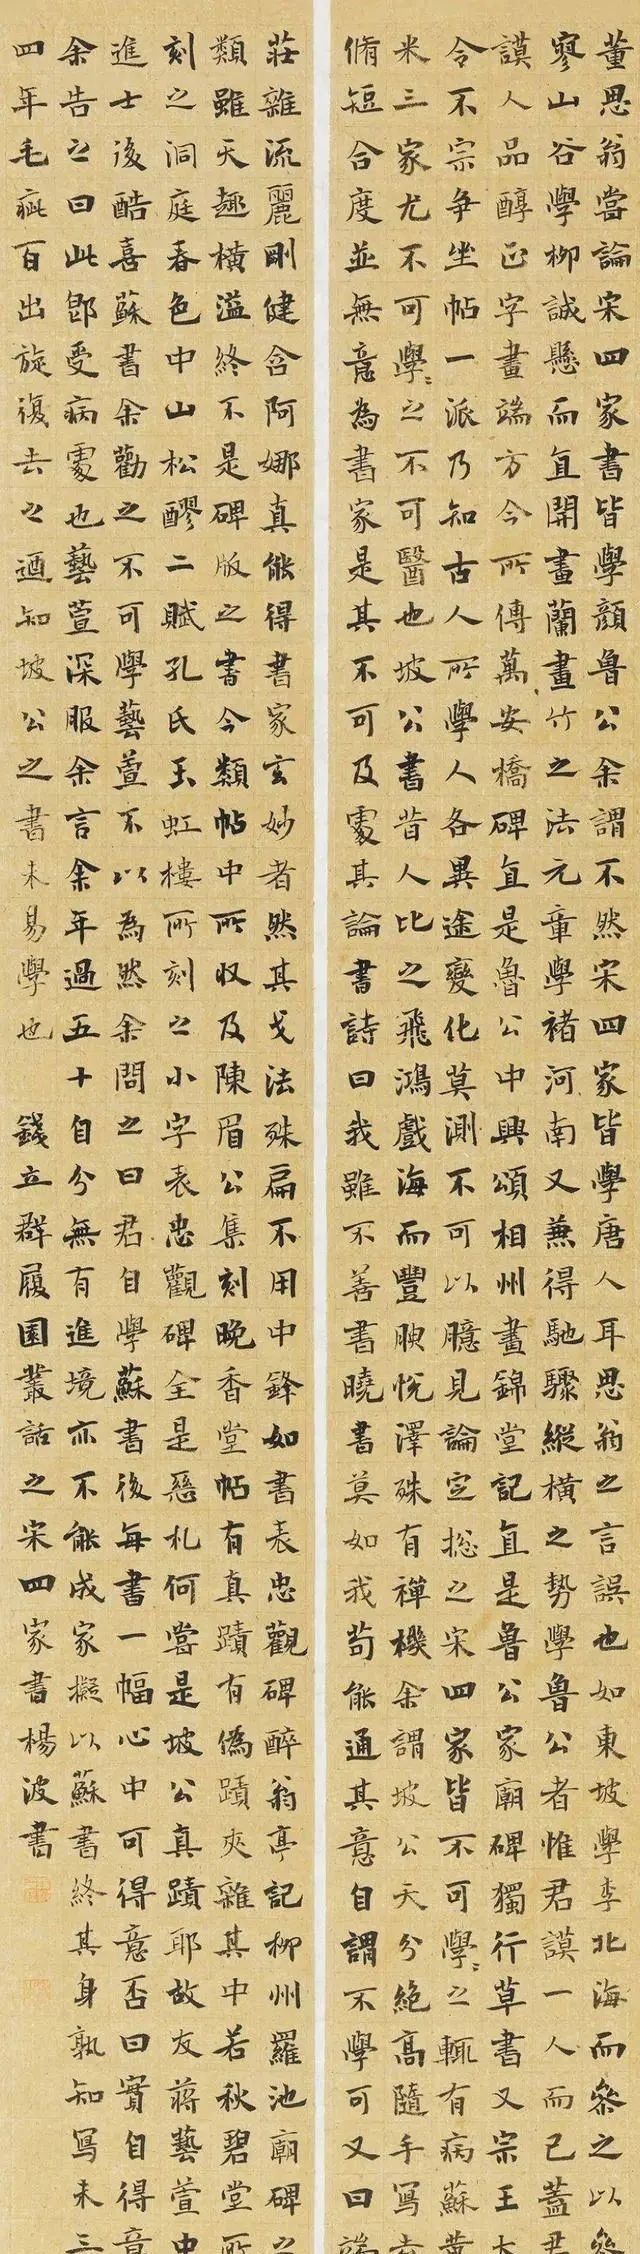 董思翁嘗論宋四家書皆學顏魯公余謂不然宋四家皆學唐人耳思翁之言誤也如東坡學李北海而參之以參
寥山谷學柳誠懸而直開畫蘭畫竹之法元章學褚河南又兼得馳驟縱橫之勢學魯公者惟君謨一人而已蓋君
謨人品醇正字畫端方今所傳萬安橋碑直是魯公中興頌相州畫錦堂記直是魯公家廟碑獨行草書又宗王大
令不宗爭坐帖一派乃知古人所學人各異途變化莫測不可以臆見論定総之宋四家皆不可學々之輒有病蘇黃
米三家尤不可學々之不可醫也坡公書昔人比之飛鴻戲海而豐腴悅澤殊有禪機余謂坡公天分絕高隨手寫去
脩短合度並無意為書家是其不可及處其論書詩曰我雖不善書曉書莫如我苟能通其意自謂不學可又曰端
莊雜流麗剛健含阿娜真能得書家玄妙者然其戈法殊扁不用中鋒如書表忠觀碑醉翁亭記柳州羅池廟碑之
類雖天趣橫溢終不是碑版之書今類帖中所收及陳眉公集刻晚香堂帖有真蹟有偽蹟夾雜其中若秋碧堂所
刻之洞庭春色中山松醪二賦孔氏玉虹樓所刻之小字表忠觀碑全是惡札何嘗是坡公真蹟耶故友蔣藝萱中
進士後酷喜蘇書余勸之不可學藝萱不以為然余問之曰君自學蘇書後每書一幅心中可得意否曰實自得意
余告之曰此即受病處也藝萱深服余言余年過五十自分無有進境亦不能成家擬以蘇書終其身孰知寫未三
四年毛疵百出旋復去之迺知坡公之書未易學也 錢立群履園叢話之宋四家書楊波書